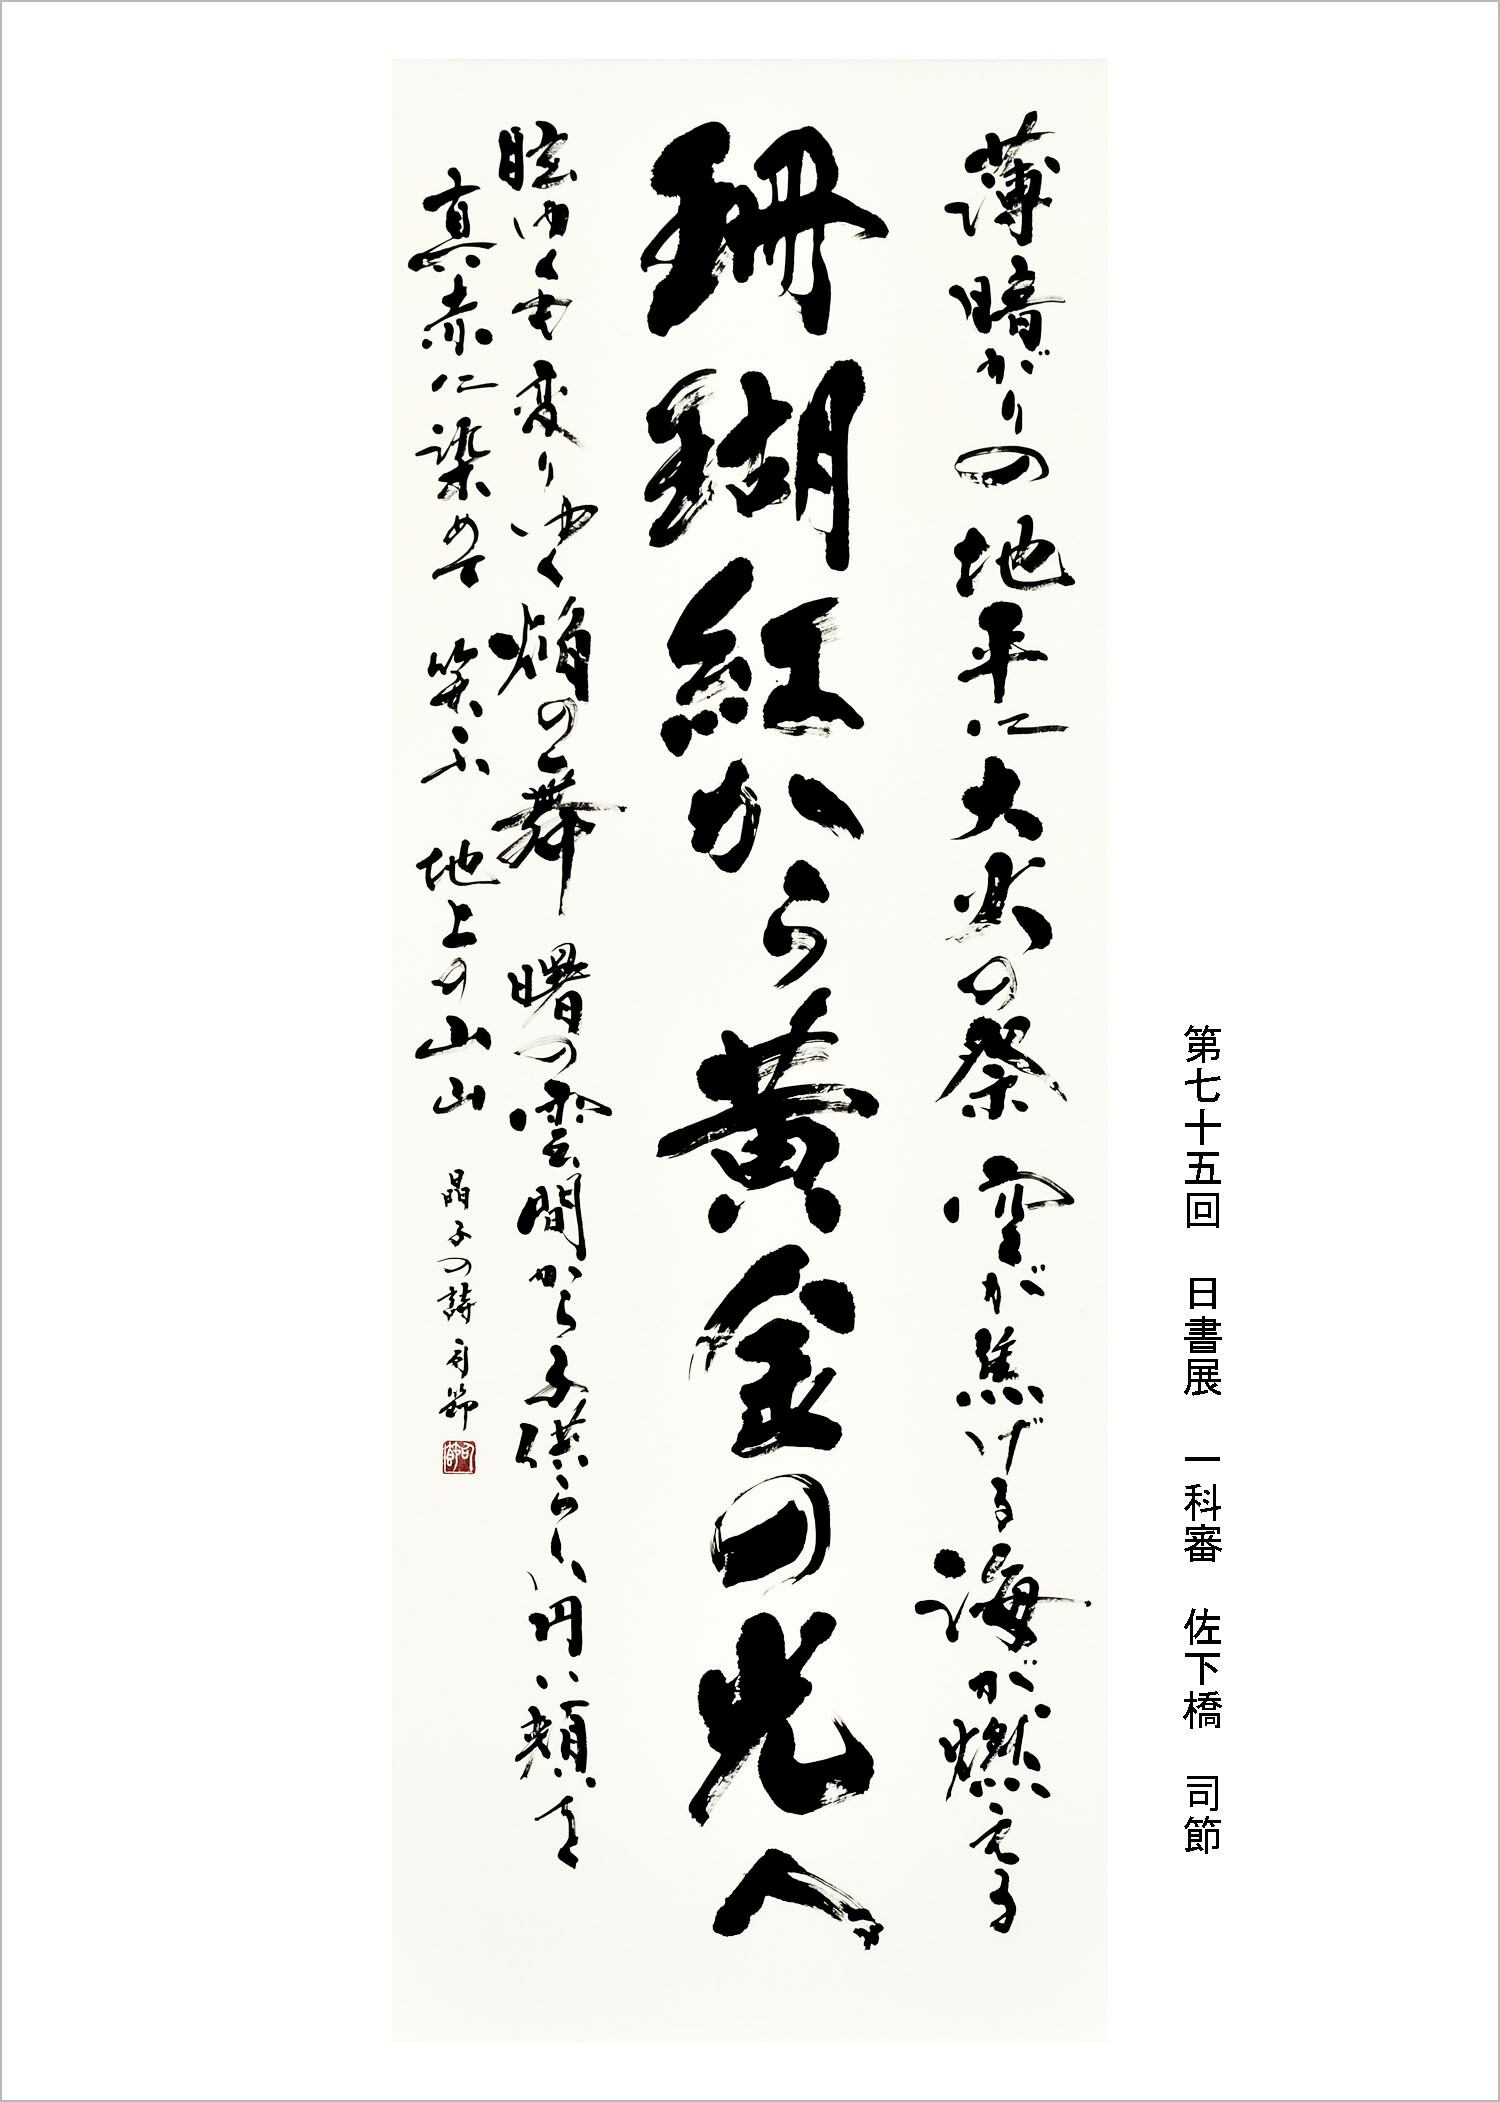 第七十五回　日書展　一科審　佐下橋　司節
薄暗がりの地平に大火の祭　空が焦げる海が燃える
珊瑚紅から黄金の光へ
眩ゆくも変りゆく焔の舞　曙の雲間から子供らしい円い頬を
真赤に染めて　笑ふ　地上の山山　晶子の詩　司節
司節